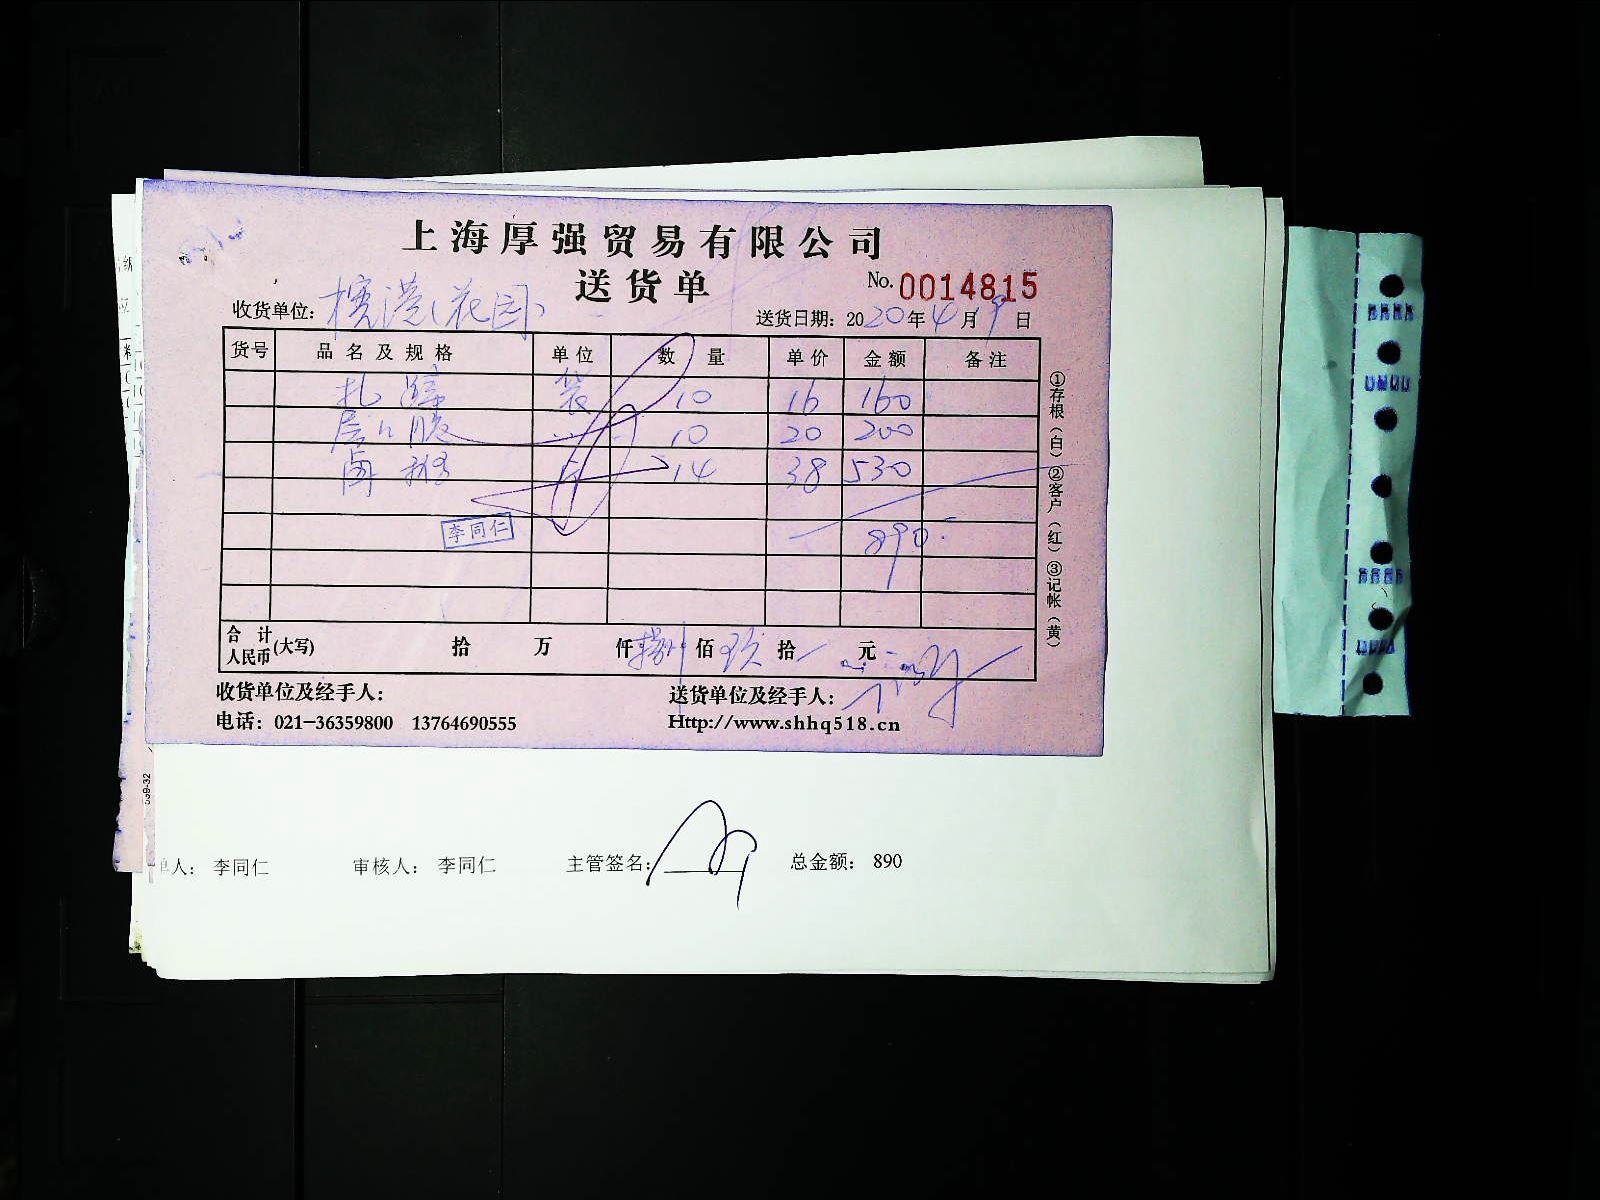 上海厚强贸易有限公司
送货单
No. 0014815
收货单位： 港（花园）
送货日期：2020年4月19日
货号 品名及规格 单位 数量 单价 金额 备注
扎 袋 10 16 160
10 20 200
14 38 530
李同仁
890.
合计人民币(大写) 拾 万 仟 捌 佰 玖 拾 元
收货单位及经手人： 送货单位及经手人：
电话：021-36359800 13764690555 Http://www.shhq518.cn
①存根（白）②客户（红）③记帐（黄）
单人： 李同仁 审核人： 李同仁 主管签名： 总金额： 890